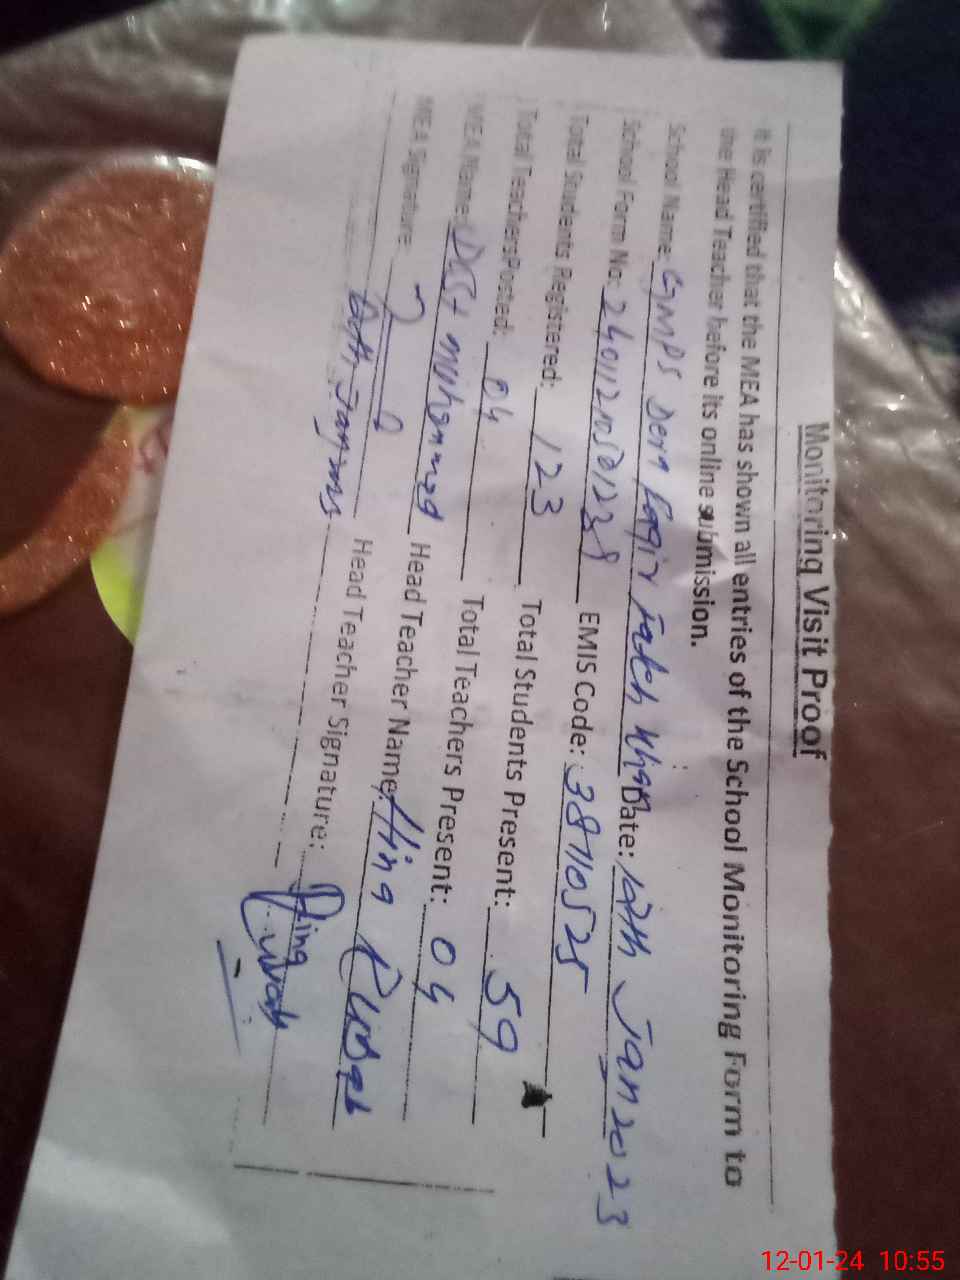 Monitoring Visit Proof
It is certified that the MEA has shown all entries of the School Monitoring Form to
the Head Teacher before its online submission.
School Name: GMPS Dera Faqir Fateh Khan Date: 12th Jan 2023
School Form No: EMIS Code: 38110525
Total Students Registered: 123 Total Students Present: 59
Total Teachers Posted: 04 Total Teachers Present: 04
MEA Name: Muhammad Head Teacher Name: Hina
MEA Signature: Head Teacher Signature: Hina
12-01-24 10:55